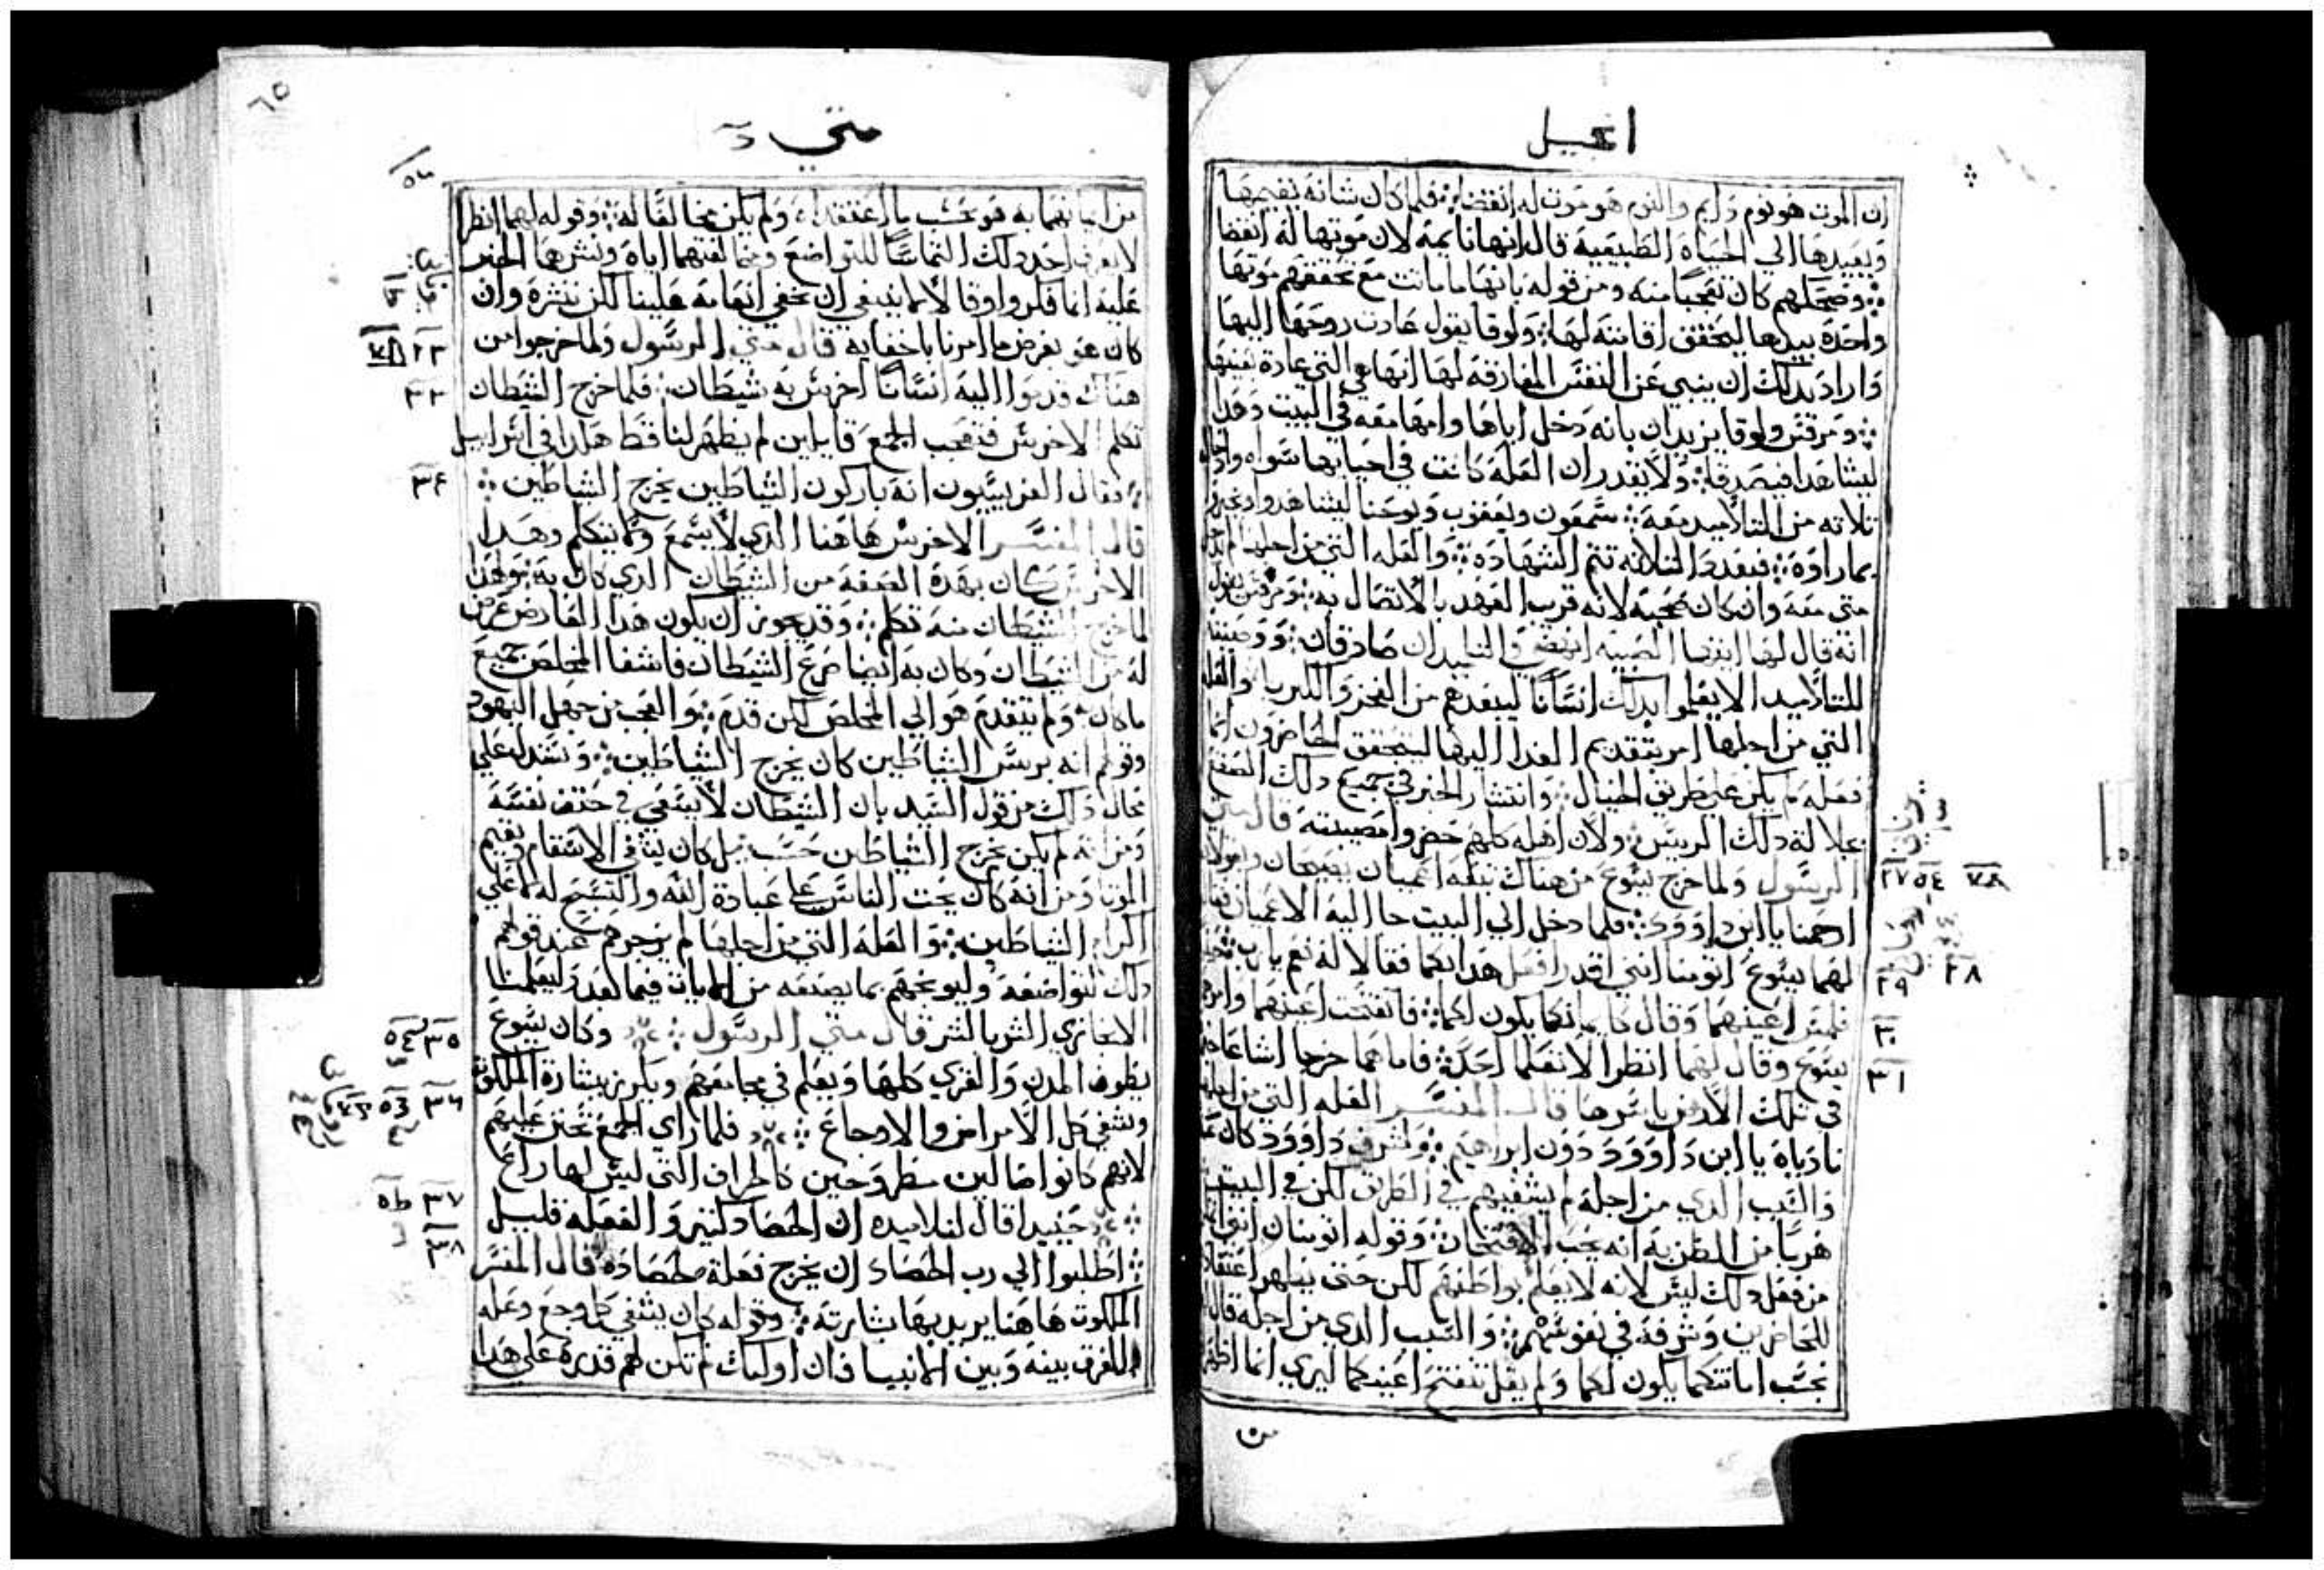 انجيل
ان الموت هو نوم دايم والنوم هو موت له انقضا فلما كان شانه يقيمها
ويعيدها الي الحياه الطبيعية قال انها نايمة لان موتها له انقضا
وضحكهم كان تعجبا منه ومن قوله بانها ما ماتت مع تحققهم موتها
واخذه بيدها ليحقق اقامته لها ولوقا يقول عادت روحها اليها
واراد بدلك ان ينبي عن النفس المفارقة لها انها هي التي عادة بعينها
ومرقس ولوقا يزيدان بانه دخل اباها وامها معه في البيت وهذا
ليشاهدا فيصدقا ولا يقدر ان العلة كانت في احيايها سواه
تلاته من التلاميد معه سمعون ويعقوب ويوحنا ليشاهدوا
بما راوه فبعدد التلاته تتم الشهادة والعله التي من اجلها
متي معه وان كان صحبه لانه قرب العهد بالاتصال به ومرقس يقول
انه قال لها ايتها الصبيه انهضي والتلميدان صادقان ووصيته
للتلاميد الا يعلموا بدلك انسانا ليبعدهم من الفخر والكبريا والعله
التي من اجلها امر بتقديم الغدا اليها ليتحقق الحاضرون انما
فعله لم يكن علي طريق الخيال وانتشار الخبر في جميع دلك الصقع
بجلالة دلك الريس ولان اهله كلهم حضروا مصيبته قال متي
الرسول ولما خرج يسوع من هناك تبعه اعميان يصيحان ويقولان
ارحمنا يا ابن داوود فلما دخل الي البيت جا اليه الاعميان فقال
لهما يسوع اتومنا انني اقدر افعل هدا بكما فقالا له نعم يا رب
فلمس اعينهما وقال كايمانكما يكون لكما فانفتحت اعينهما
يسوع وقال لهما انظرا لا تعلما احدا فاما هما خرجا اشاعا
في تلك الارض باسرها قال المفسر العله التي من اجلها
نادياه يا ابن داوود دون ابراهيم ولشرف داوود كان
والسبب الدي من اجله لم يشفيهم في الطريق لكن في البيت
هربا من الظن به انه يحب الافتخار وقوله اتومنان
من فعل دلك ليس لانه لا يعلم بواطنهم لكن حتي يظهر
للحاضرين وشرفه في نفوسهم والسبب الدي من اجله قال
بحسب امانتكما يكون لكما ولم يقل تنفتح اعينكما ليري انما
من
٢٧ ٥٤
٢٨
٢٩
٣٠
٣١
٦٥
متي
من ايمانهما به هو بحسب ما اعتقداه ولم يكن مخالفا له وقوله لهما انظرا
لا يعرف احد دلك التماسا للتواضع ومخالفتهما اياه ونشرهما الخبر
عليه انما فكروا وقالا لا ينبغي ان نخفي انعامه علينا لكن ننشره وان
كان هو بغرض ما امرنا باخفايه قال متي الرسول ولما خرجوا من
هناك قدموا اليه انسانا اخرس به شيطان فلما خرج الشيطان
تكلم الاخرس فتعجب الجمع قايلين لم يظهر لنا قط هكدا في اسراييل
فقال الفريسيون انه باركون الشياطين يخرج الشياطين
قال المفسر الاخرس هاهنا الدي لا يسمع ولا يتكلم وهدا
الاخرس كان بهدة الصفة من الشيطان الدي كان به
لما خرج الشيطان منه تكلم وقد يجوز ان يكون هدا العارض عرض
له من الشيطان وكان به ايضا صرع الشيطان فاشفا المخلص جميع
ما كان ولم يتقدم هو الي المخلص لكن قدم والعجب من جهل اليهود
وقولهم انه بريس الشياطين كان يخرج الشياطين ونستدل علي
محال دلك من قول السيد بان الشيطان لا يسعي في حتف نفسه
ومن انه لم يكن يخرج الشياطين حسب بل كان يشفي الاسقام ويقيم
الموتا ومن انه كان يحت الناس علي عبادة الله والتسبيح له لا علي
اكرام الشياطين والعله التي من اجلها لم يزجرهم عند قولهم
دلك لتواضعه وليوبخهم بما يصنعه من الايات فيما بعد وليعلمنا
الا نجازي الشر بالشر قال متي الرسول وكان يسوع
يطوف المدن والقري كلها ويعلم في مجامعهم ويكرز ببشارة الملكوت
ويشفي كل الامراض والاوجاع فلما راي الجمع تحنن عليهم
لانهم كانوا ضالين مطروحين كالخراف التي ليس لها راع
حينيد قال لتلاميده ان الحصاد كثير والفعله قليل
اطلبوا الي رب الحصاد ان يخرج فعلة لحصاده قال المفسر
الملكوت هاهنا يريد بها بشارته وقوله كان يشفي كل وجع وعله
للفرق بينه وبين الانبيا فان اوليك لم تكن لهم قدرة علي هدا
٣٢
٣٣
٣٤
٣٥
٣٦
٣٧
٣٨